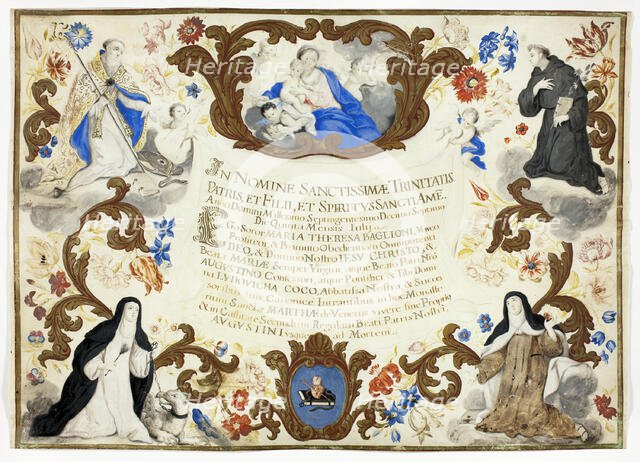 IN NOMINE SANCTISSIMÆ TRINITATIS
PATRIS, ET FILII, ET SPIRITVS SANCTI AMĒ.
Anno Domini Millesimo Septingentesimo Decimo Septimo
Die Quinta Mensis Iulij
EGo Soror MARIA THERESA BAGLIONI, Voveo
Profiteor, & Promitto Obedientiam Omnipotenti
DEO, & Domino Nostro IESV CHRISTO
Beatæ MARIÆ Semper Virgini, atque Beato Patri Nrō
AUGUSTINO Confessori, atque Pontifici, & Tibi Domi
na LUDOVICHA COCO Abbatissa Nostra, & Succe
soribus tuis, Canonice Intrantibus in hoc Monaste
rium Sanctæ MARTHÆ de Venetijs vivere sine Proprio
& in Castitate Secundum Regulam Beati Patris Nostri
AVGVSTINI usque ad Mortem.
Heritage
Heritage
Heritage
Heritage
Heritage
Heritage